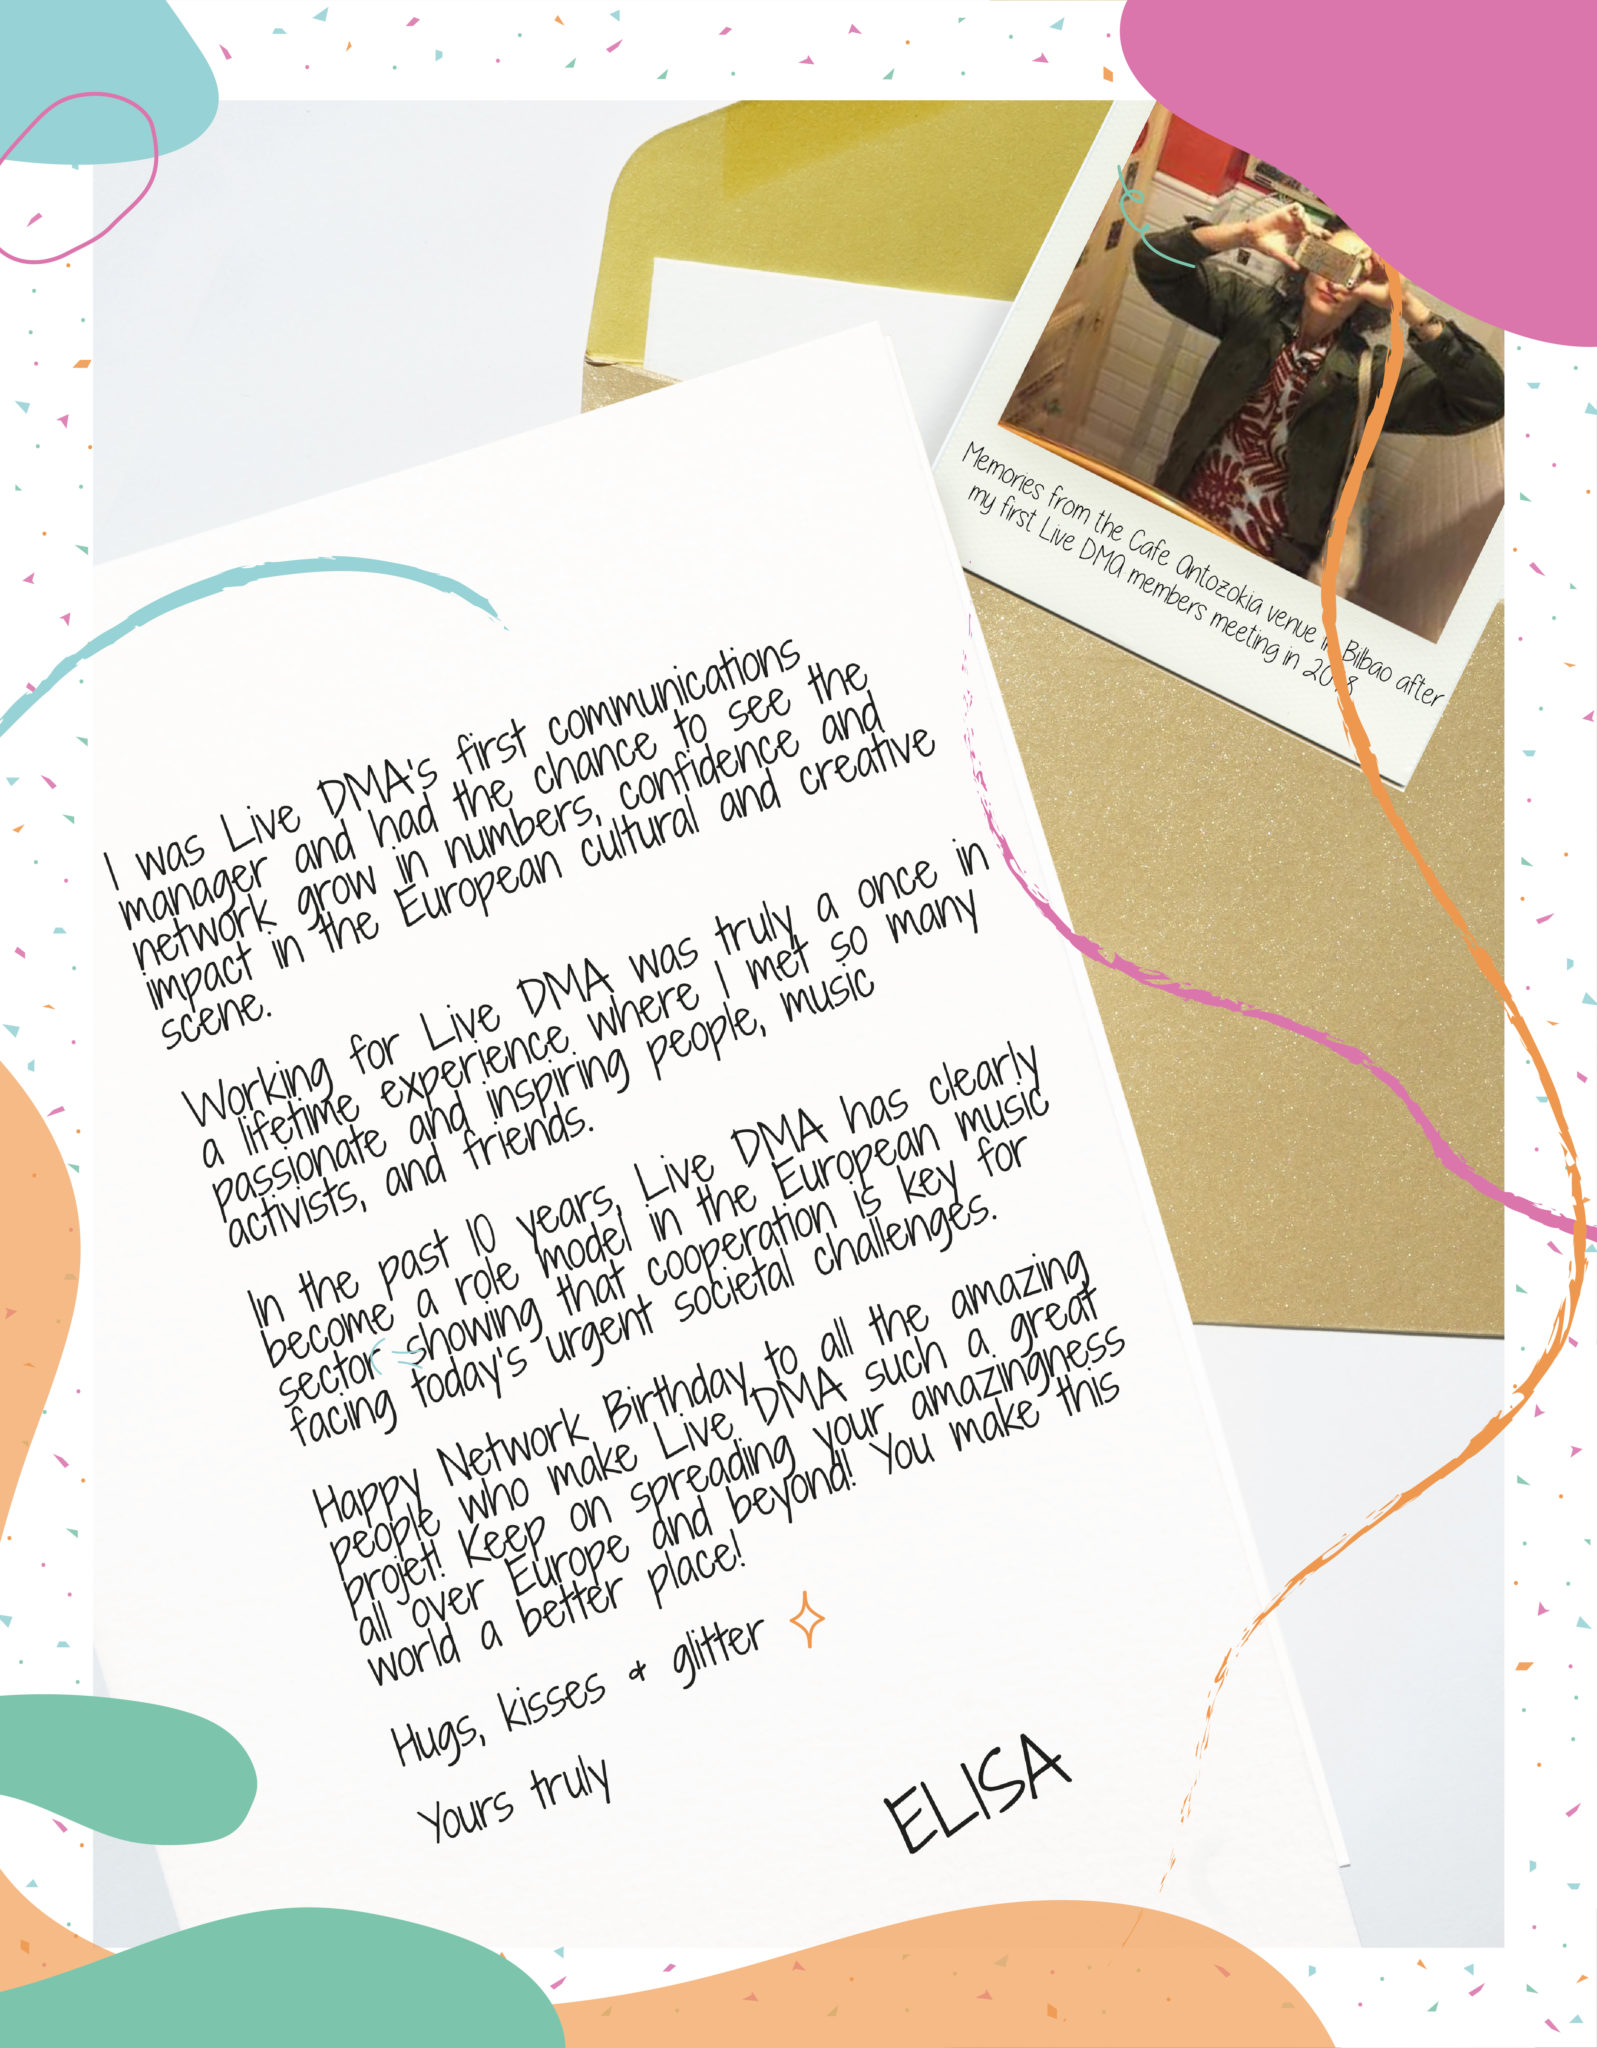 Memories from the Cafe Antozokia venue in Bilbao after
my first Live DMA members meeting in 2018
I was Live DMA's first communications
manager and had the chance to see the
network grow in numbers, confidence and
impact in the European cultural and creative
scene.
Working for Live DMA was truly a once in
a lifetime experience where I met so many
passionate and inspiring people, music
activists, and friends.
In the past 10 years, Live DMA has clearly
become a role model in the European music
sector showing that cooperation is key for
facing today's urgent societal challenges.
Happy Network Birthday to all the amazing
people who make Live DMA such a great
projet! Keep on spreading your amazingness
all over Europe and beyond! You make this
world a better place!
Hugs, kisses + glitter
Yours truly
ELISA